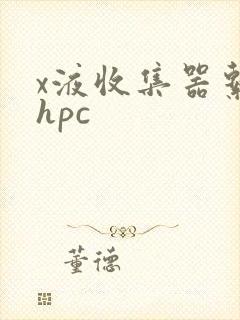 x液收集器
hpc
董德